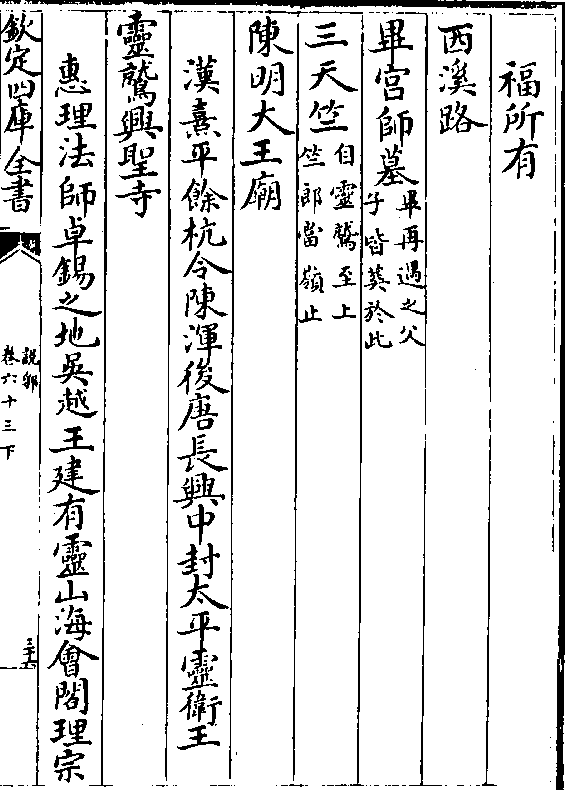 福所有
西溪路
畢宮師墓畢再遇之父
子皆葬於此
三天竺自靈鷲至上
竺郎當嶺止
陳明大王廟
漢熹平餘杭令陳渾後唐長興中封太平靈衛王
靈鷲興聖寺
惠理法師卓錫之地吳越王建有靈山海會閣理宗
欽定四庫全書
說郛
卷六十三下
三十六